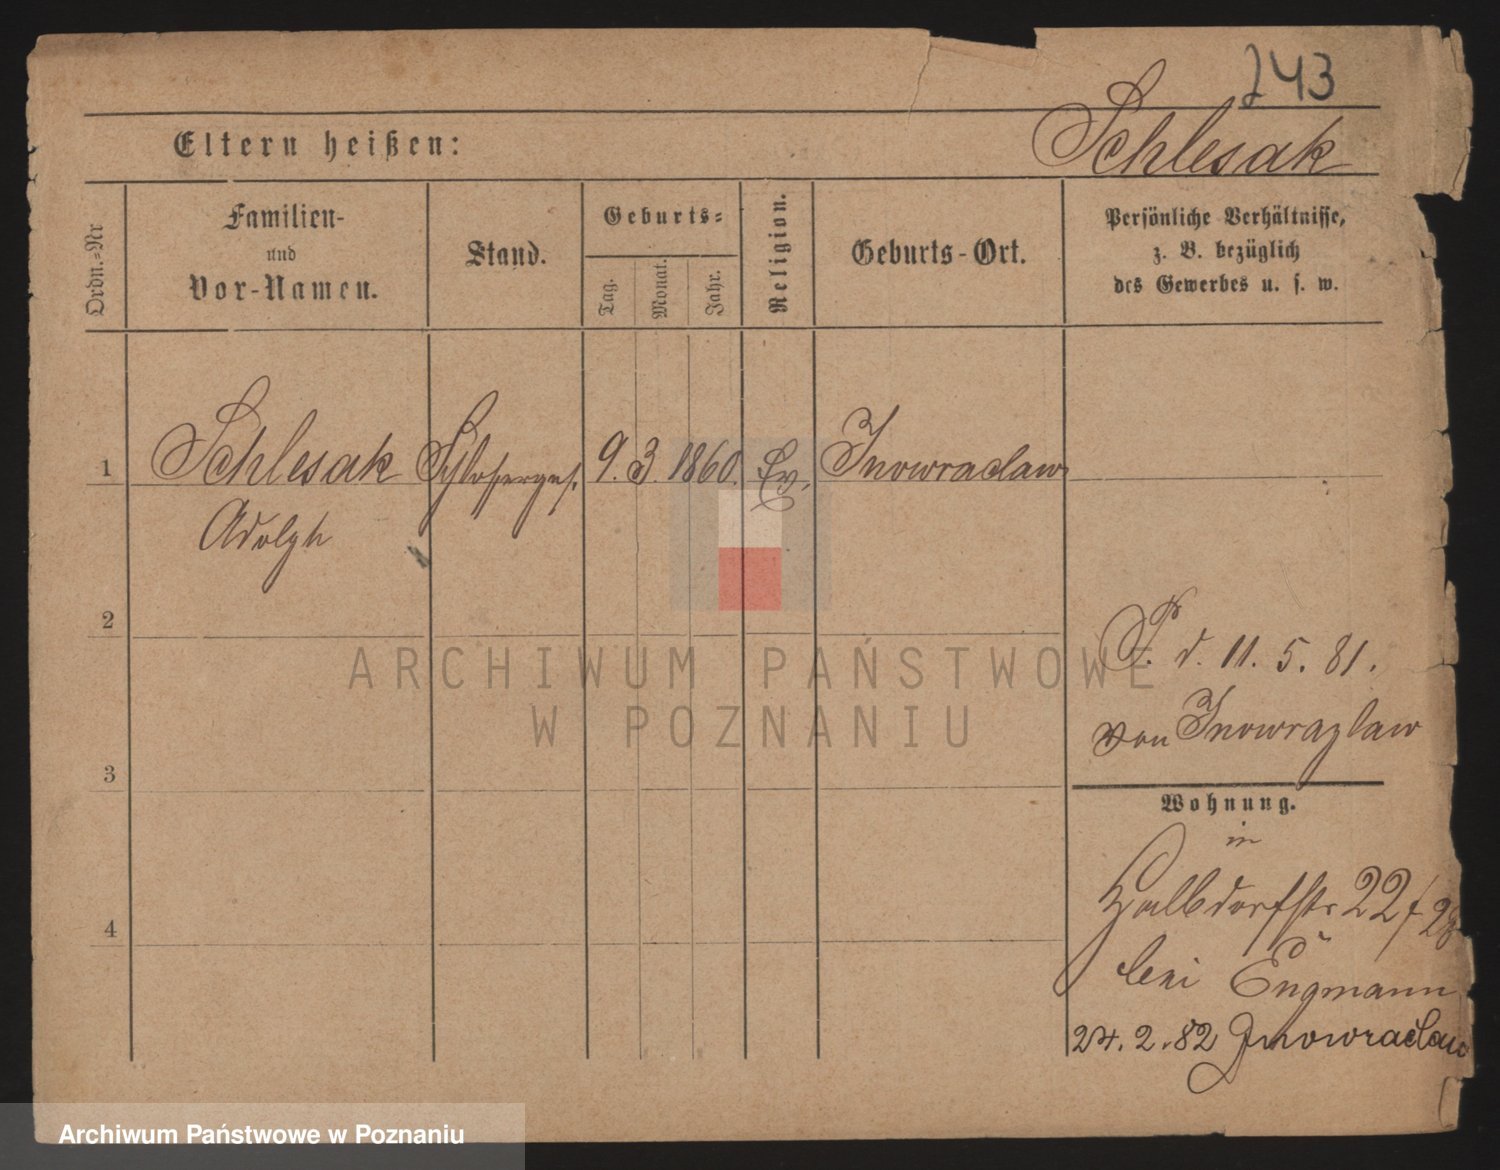 243
Schlesak
Eltern heißen:
Ordn.=Nr
Familien-
und
Vor-Namen.
Stand.
Geburts=
Tag.
Monat.
Jahr.
Religion.
Geburts-Ort.
Persönliche Verhältnisse,
z. B. bezüglich
des Gewerbes u. s. w.
1 Schlesak Schlosserges. 9. 3. 1860. Ev. Inowraclaw
Adolph
2
P. d. 11. 5. 81.
von Inowrazlaw
3
Wohnung.
in
Halbdorfstr 22
4
bei Engmann
24. 2. 82 Inowraclaw
ARCHIWUM PAŃSTWOWE
W POZNANIU
Archiwum Państwowe w Poznaniu